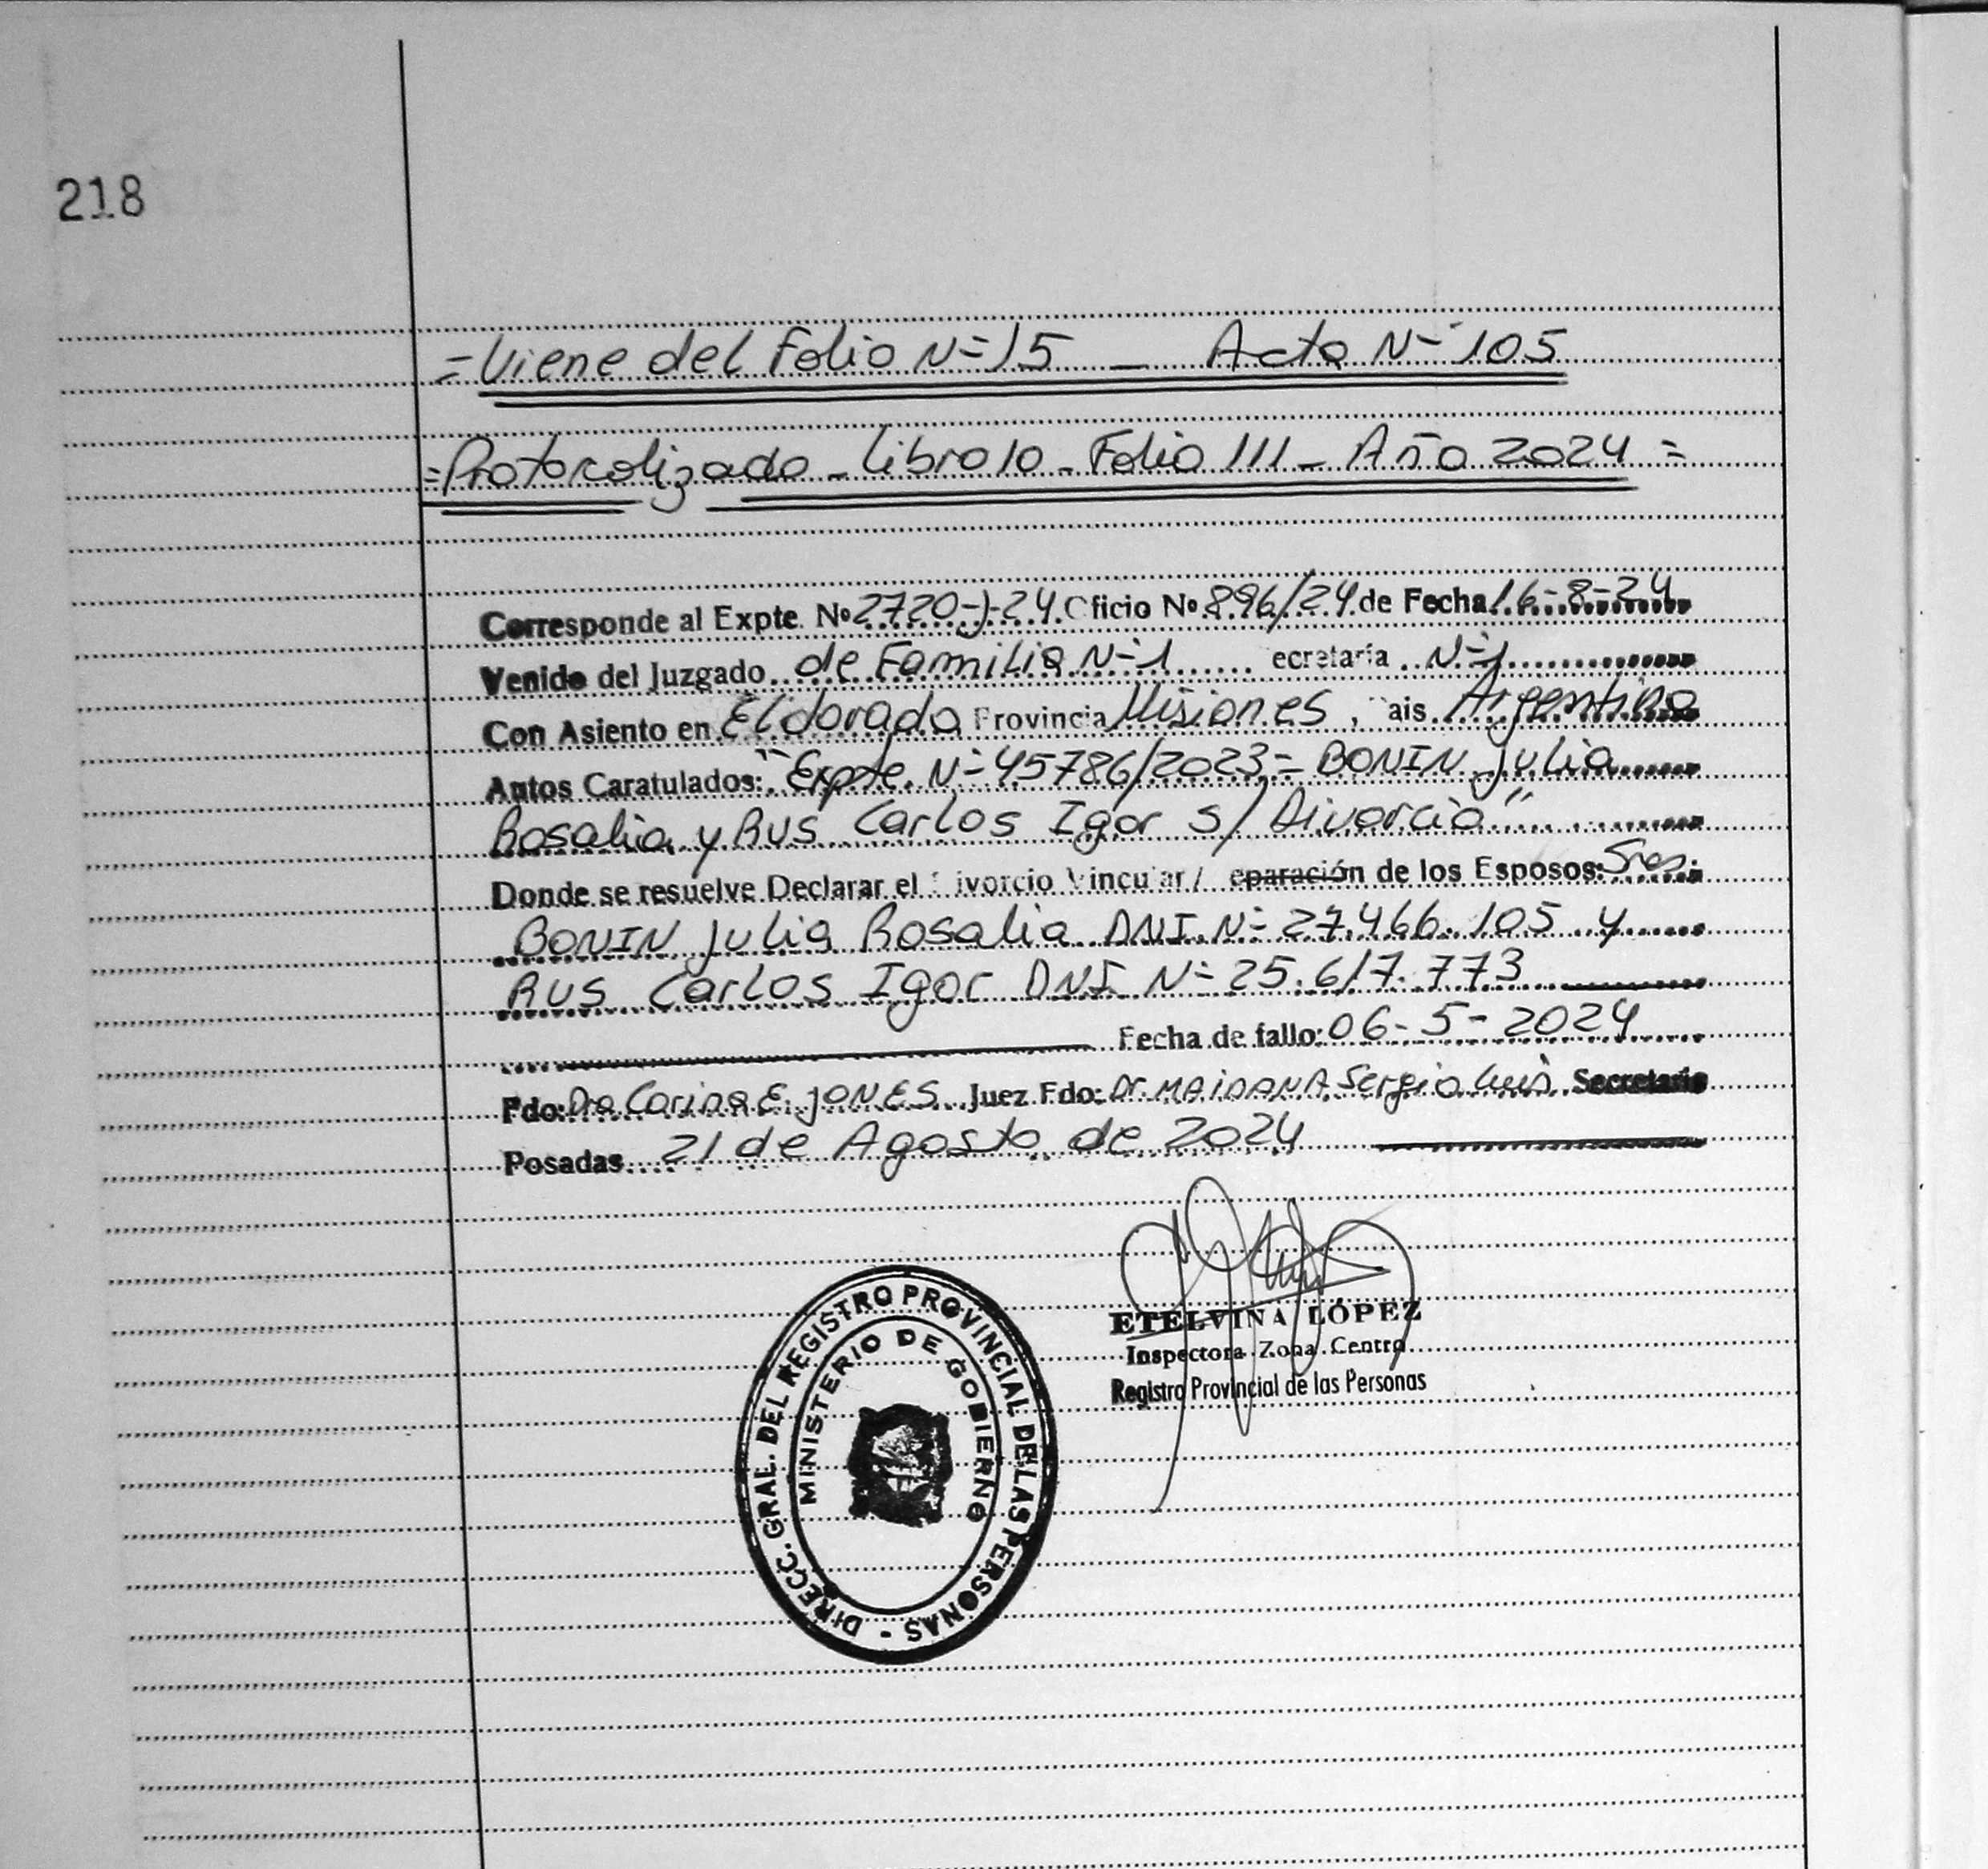 218
= Viene del Folio Nº 15 _ Acta Nº 105
= Protocolizado _ Libro 10 _ Folio 111 _ Año 2024 =
Corresponde al Expte. Nº 2720-J-24. Oficio Nº 896/24 de Fecha 16-8-24
Venido del Juzgado de Familia Nº 1 ecretaria Nº 1
Con Asiento en Eldorado Provincia Misiones, ais Argentina
Autos Caratulados: "Expte. Nº 45786/2023 = BONIN Julia
Rosalia y RUS Carlos Igor S/ Divorcio"
Donde se resuelve Declarar el ivorcio Vincular / eparación de los Esposos: Sres.
BONIN Julia Rosalia DNI. Nº 27.466.105 y
RUS Carlos Igor DNI Nº 25.617.773
Fecha de fallo: 06-5-2024
Fdo: Dra Carina E. JONES Juez Fdo: Dr. MAIDANA Sergio Luis Secretario
Posadas 21 de Agosto de 2024
ETELVINA LÓPEZ
Inspectora Zona Centro
Registro Provincial de las Personas
DIRECC. GRAL. DEL REGISTRO PROVINCIAL DE LAS PERSONAS -
MINISTERIO DE GOBIERNO